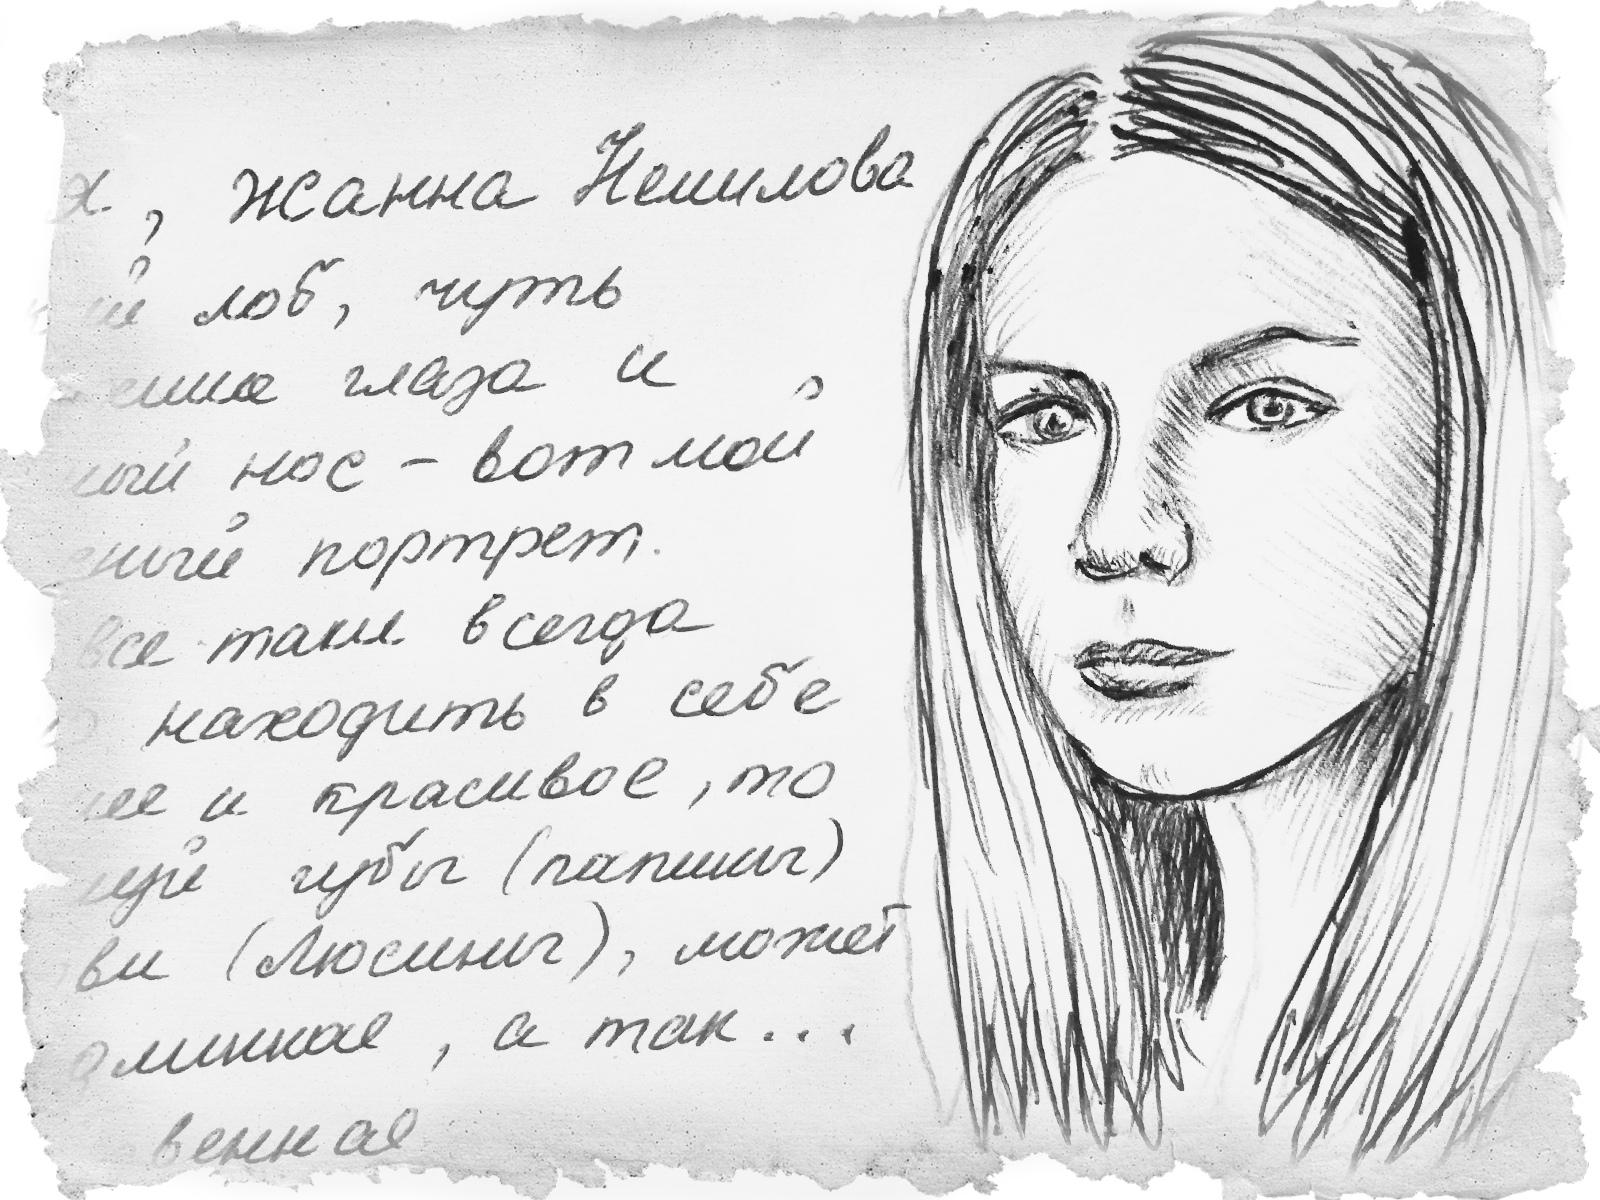 х, Жанна Немилова
ый лоб, чуть
глаза и
ный нос - вот мой
ный портрет.
все таки всегда
находить в себе
ее и красивое, то
губы (папины)
ви (Люсины), может
оминкае, а так...
венная